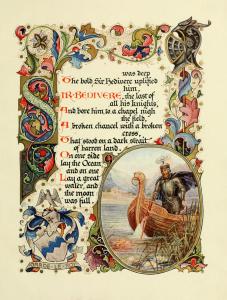 was deep
The bold Sir Bedivere uplifted
him,
SIR BEDIVERE, the last of
all his knights,
And bore him to a chapel nigh
the field,
A broken chancel with a broken
cross,
That stood on a dark strait
of barren land.
On one side
lay the Ocean
and on one
Lay a great
water, and
the moon
was full.